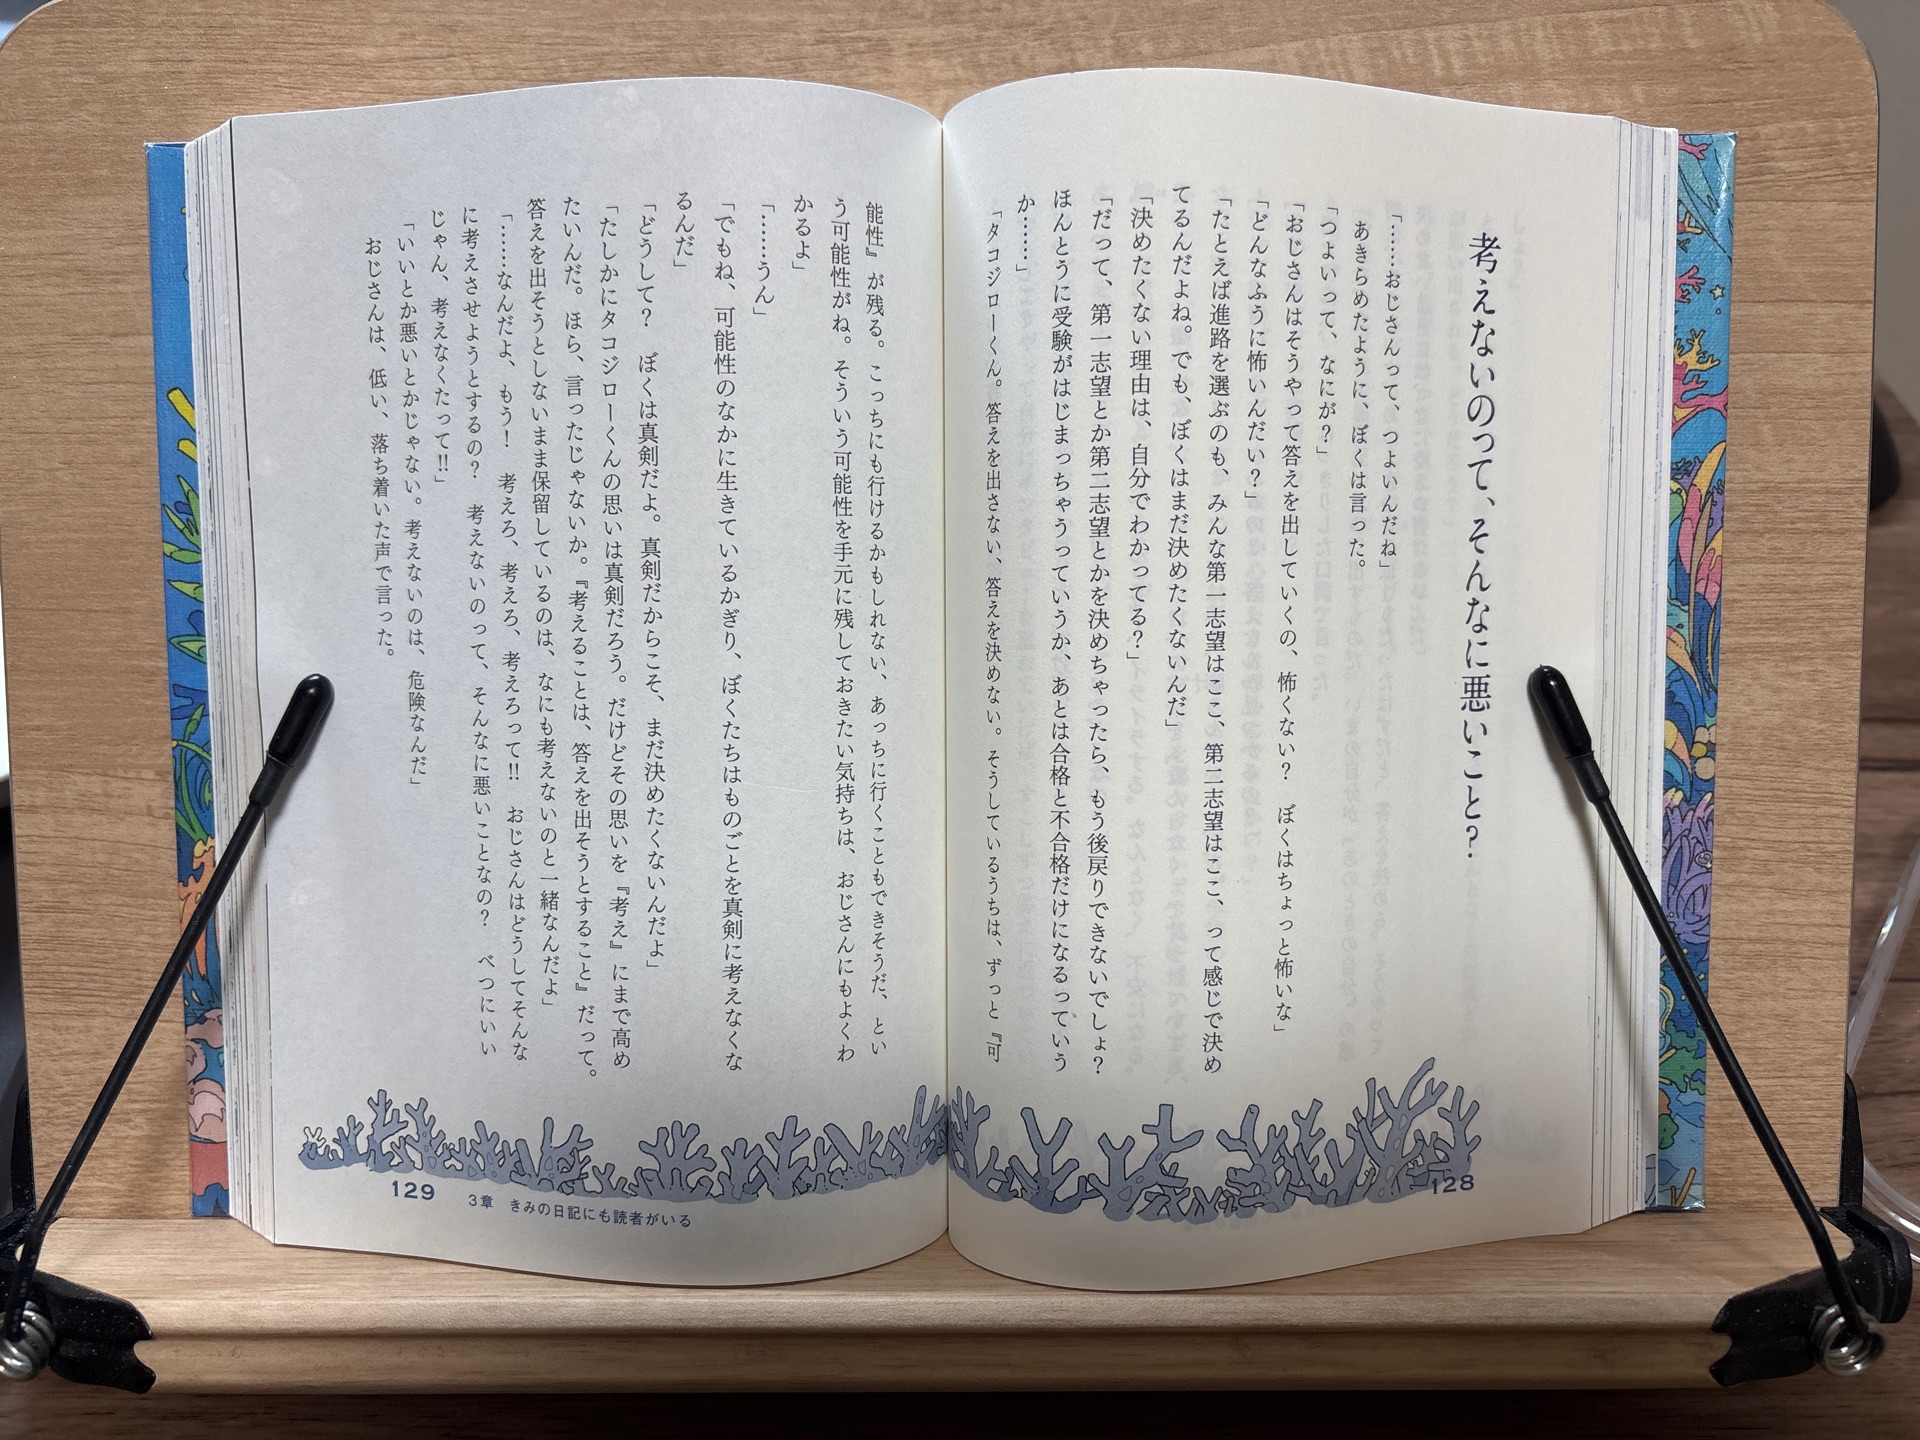 考えないのって、そんなに悪いこと？
「……おじさんって、つよいんだね」
あきらめたように、ぼくは言った。
「つよいって、なにが？」
「おじさんはそうやって答えを出していくの、怖くない？　ぼくはちょっと怖いな」
「どんなふうに怖いんだい？」
「たとえば進路を選ぶのも、みんな第一志望はここ、第二志望はここ、って感じで決め
てるんだよね。でも、ぼくはまだ決めたくないんだ」
「決めたくない理由は、自分でわかってる？」
「だって、第一志望とか第二志望とかを決めちゃったら、もう後戻りできないでしょ？
ほんとうに受験がはじまっちゃうっていうか、あとは合格と不合格だけになるっていう
か……」
「タコジローくん。答えを出さない、答えを決めない。そうしているうちは、ずっと『可
128
能性』が残る。こっちにも行けるかもしれない、あっちに行くこともできそうだ、とい
う可能性がね。そういう可能性を手元に残しておきたい気持ちは、おじさんにもよくわ
かるよ」
「……うん」
「でもね、可能性のなかに生きているかぎり、ぼくたちはものごとを真剣に考えなくな
るんだ」
「どうして？　ぼくは真剣だよ。真剣だからこそ、まだ決めたくないんだよ」
「たしかにタコジローくんの思いは真剣だろう。だけどその思いを『考え』にまで高め
たいんだ。ほら、言ったじゃないか。『考えることは、答えを出そうとすること』だって。
答えを出そうとしないまま保留しているのは、なにも考えないのと一緒なんだよ」
「……なんだよ、もう！　考えろ、考えろ、考えろって!!　おじさんはどうしてそんな
に考えさせようとするの？　考えないのって、そんなに悪いことなの？　べつにいい
じゃん、考えなくたって!!」
「いいとか悪いとかじゃない。考えないのは、危険なんだ」
おじさんは、低い、落ち着いた声で言った。
129　3章　きみの日記にも読者がいる